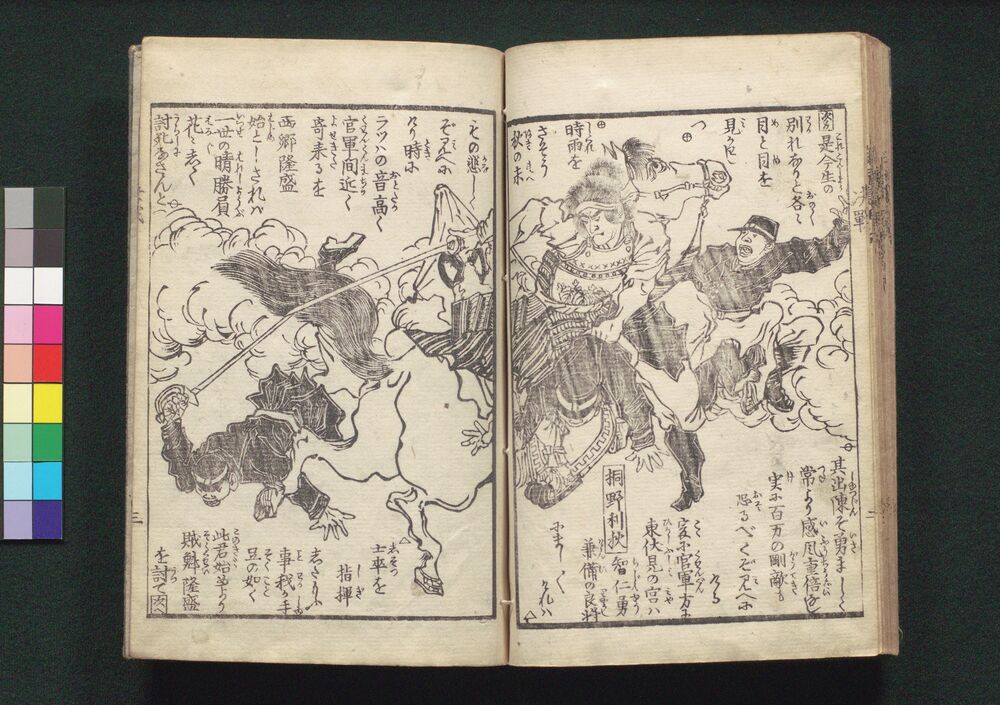 是今生の
別れなりと各々
目と目を
見合し
つ
時雨を
さそう
秋の末
その悲し
ぞ見へに
ける時に
ラツハの音高く
官軍間近く
寄来るを
西郷隆盛
始としされバ
一世の晴勝員
花々しく
討死なさんと
其出陳そ勇まし
常より感風百倍を
実に百万の剛敵も
恐るべくぞ見へに
ける
爰に官軍方に
東伏見の宮ハ
智仁勇
兼備の良将
にましく
けれハ
桐野利秋
士卒を
指揮
したまふ
事我が手
足の如く
此君始めより
賊魁隆盛
を討て
決戦
二
三